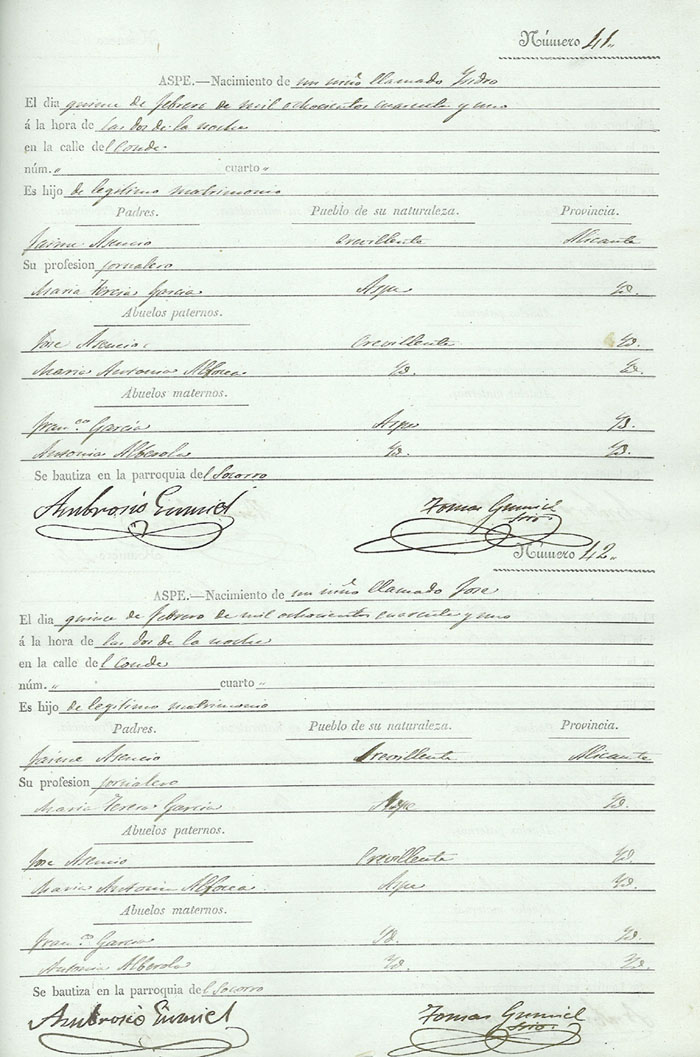 Número 41.
ASPE.—Nacimiento de un niño llamado Ysidro
El dia quince de febrero de mil ochocientos cuarenta y uno
á la hora de las dos de la noche
en la calle del Conde
núm. „ cuarto „
Es hijo de legitimo matrimonio
Padres. Pueblo de su naturaleza. Provincia.
Jaime Asencio Crevillente Alicante
Su profesion jornalero
Maria Teresa Garcia Aspe Yd.
Abuelos paternos.
Jose Asencio Crevillente Yd.
Maria Antonia Alfosea Yd. Yd.
Abuelos maternos.
Fran.co Garcia Aspe Yd.
Antonia Alberola Yd. Yd.
Se bautiza en la parroquia del Socorro
Ambrosio Tomas Gumiel
Srio.
Número 42.
ASPE.—Nacimiento de un niño llamado Jose
El dia quince de febrero de mil ochocientos cuarenta y uno
á la hora de las dos de la noche
en la calle del Conde
núm. „ cuarto „
Es hijo de legitimo matrimonio
Padres. Pueblo de su naturaleza. Provincia.
Jaime Asencio Crevillente Alicante
Su profesion jornalero
Maria Teresa Garcia Aspe Yd.
Abuelos paternos.
Jose Asencio Crevillente Yd.
Maria Antonia Alfosea Aspe Yd.
Abuelos maternos.
Fran.co Garcia Yd. Yd.
Antonia Alberola Yd. Yd.
Se bautiza en la parroquia del Socorro
Ambrosio Tomas Gumiel
Srio.